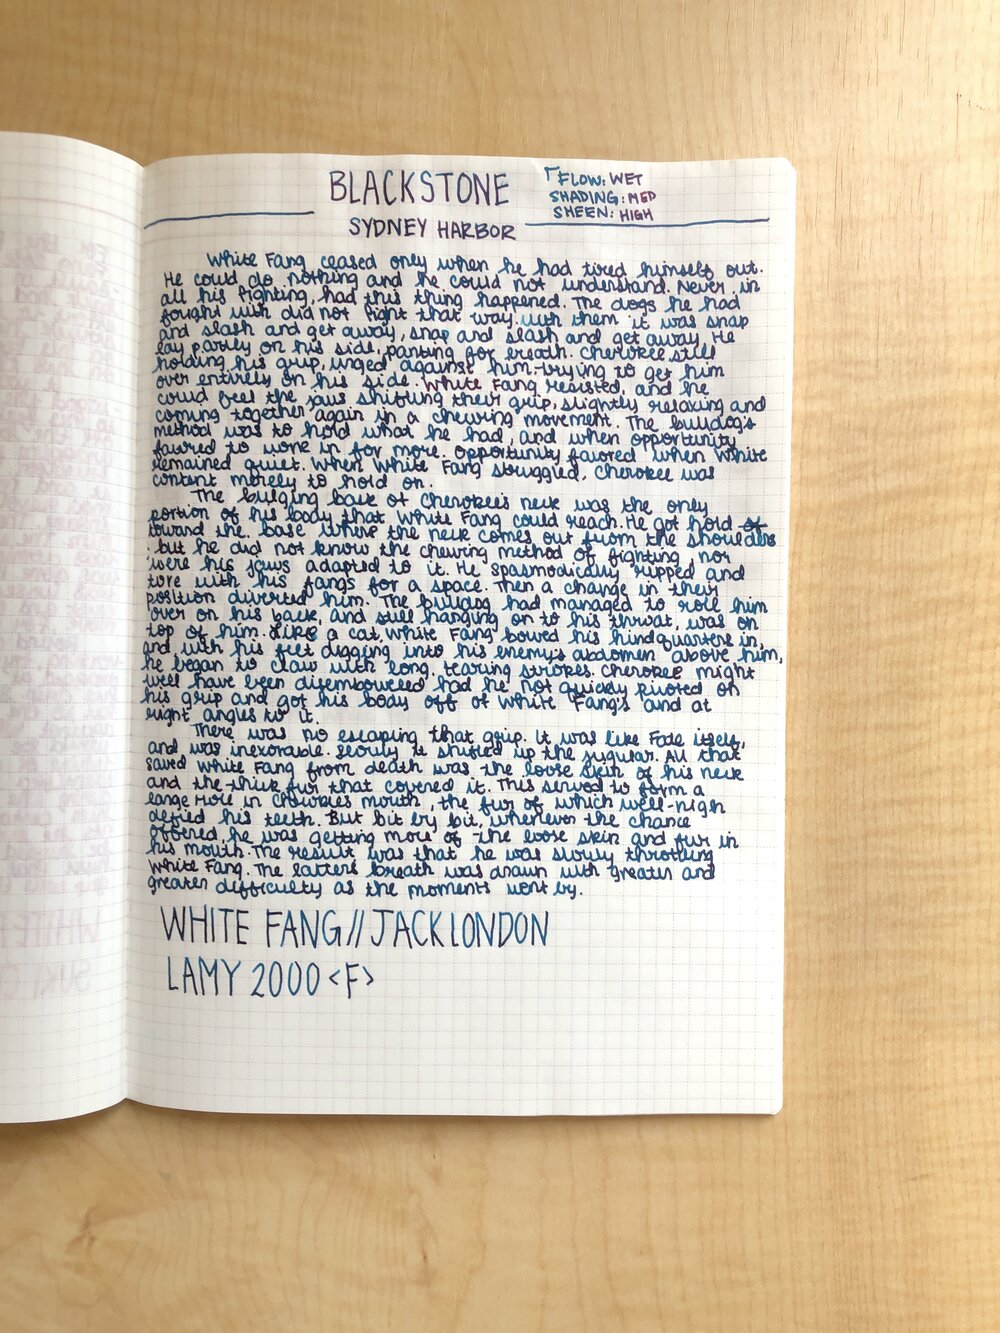 BLACKSTONE
SYDNEY HARBOR
FLOW: WET
SHADING: MED
SHEEN: HIGH
White Fang ceased only when he had tired himself out.
He could do nothing and he could not understand. Never in
all his fighting, had this thing happened. The dogs he had
fought with did not fight that way. With them it was snap
and slash and get away, snap and slash and get away. He
lay partly on his side, panting for breath. Cherokee still
holding his grip, urged against him, trying to get him
over entirely on his side. White Fang resisted, and he
could feel the jaws shifting their grip, slightly relaxing and
coming together again in a chewing movement. The bulldog's
method was to hold what he had, and when opportunity
favored to work in for more. Opportunity favored when White
remained quiet. When White Fang struggled, Cherokee was
content merely to hold on.
The bulging back of Cherokee's neck was the only
portion of his body that White Fang could reach. He got hold of
toward the base where the neck comes out from the shoulders
. but he did not know the chewing method of fighting, nor
were his jaws adapted to it. He spasmodically ripped and
tore with his fangs for a space. Then a change in their
position diverted him. The bulldog had managed to roll him
over on his back, and still hanging on to his throat, was on
top of him. Like a cat, White Fang bowed his hindquarters in,
and with his feet digging into his enemy's abdomen above him,
he began to claw with long, tearing strokes. Cherokee might
well have been disemboweled had he not quickly pivoted on
his grip and got his body off of White Fang's and at
right angles to it.
There was no escaping that grip. It was like Fate itself,
and was inexorable. Slowly it shifted up the jugular. All that
saved White Fang from death was the loose skin of his neck
and the thick fur that covered it. This served to form a
large role in Chowkies mouth, the fur of which well-nigh
defied his teeth. But bit by bit, whenever the chance
offered, he was getting more of the loose skin and fur in
his mouth. The result was that he was slowly throttling
White Fang. The latter's breath was drawn with greater and
greater difficulty as the moments went by.
WHITE FANG // JACK LONDON
LAMY 2000 <F>